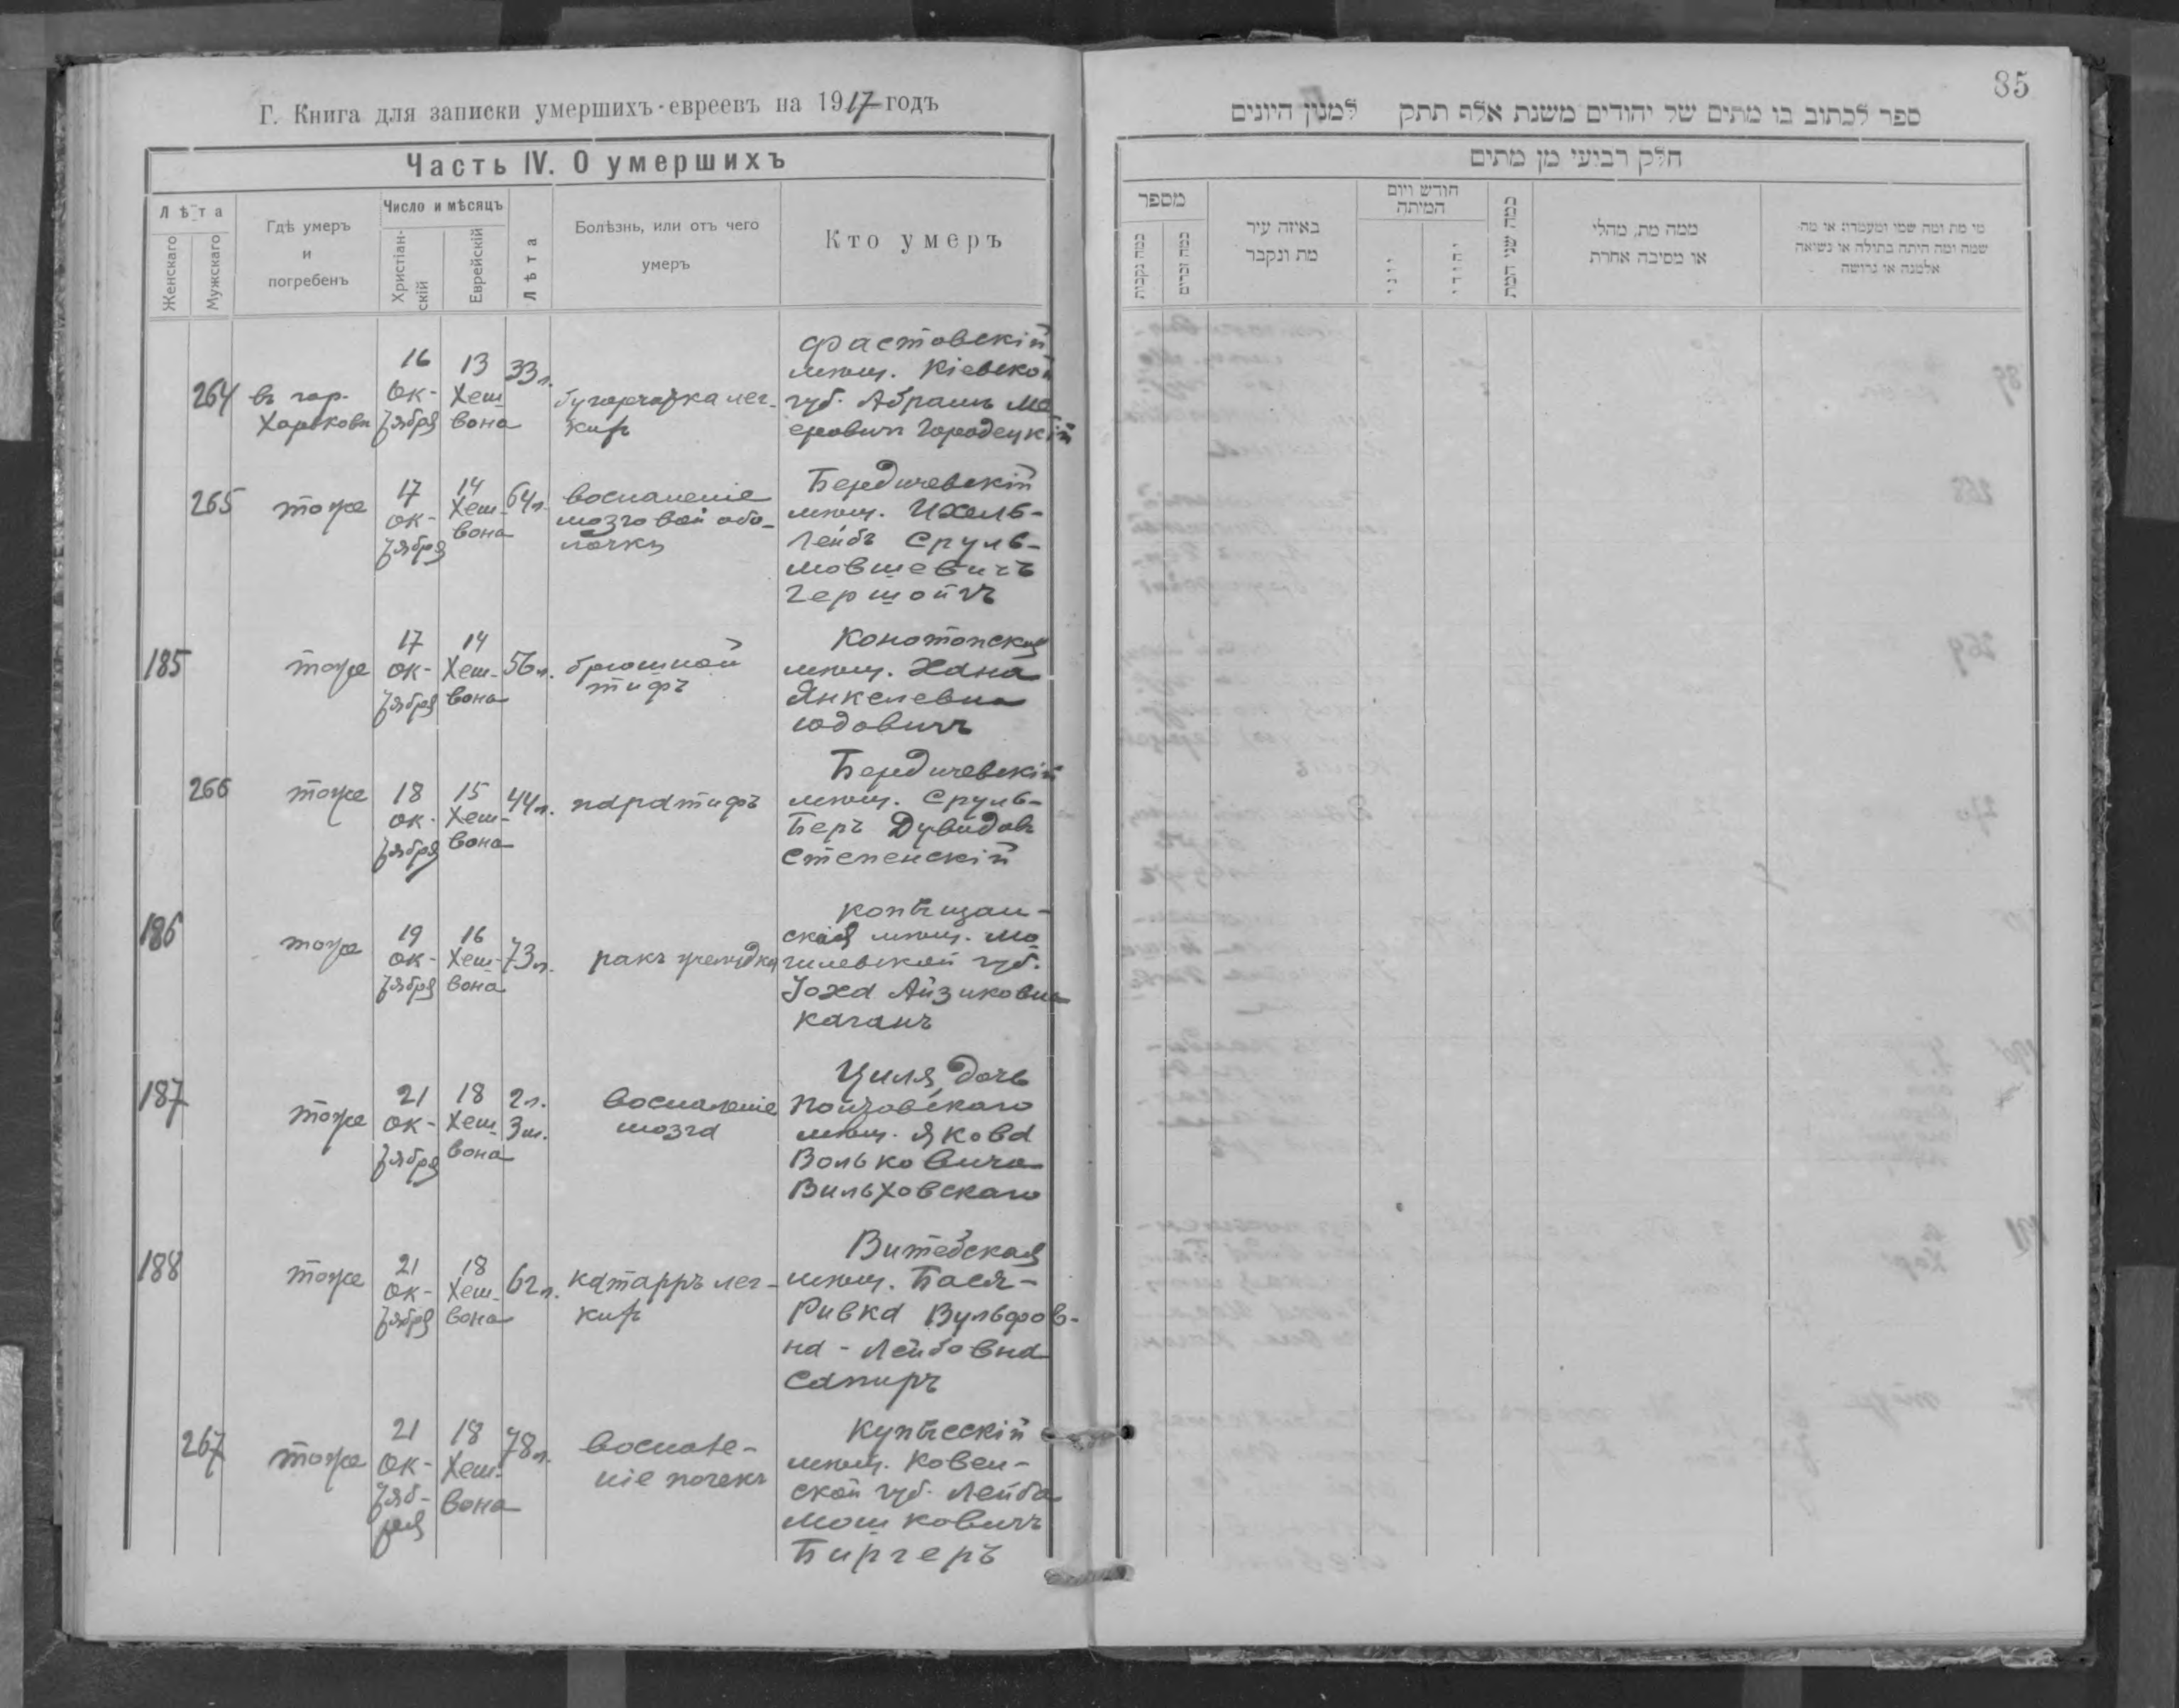 Г. Книга для записки умершихъ-евреевъ на 1917 годъ
Часть IV. О умершихъ
Лѣта
Женскаго
Мужскаго
Гдѣ умеръ
и
погребенъ
Число и мѣсяцъ
Христіан-
скій
Еврейскій
Лѣта
Болѣзнь, или отъ чего
умеръ
Кто умеръ
264
въ гор.
Харьковѣ
16
Ок-
тября
13
Хеш
вона
33 л.
бугорчатка лег-
кихъ
Фастовскій
мѣщ. Кіевской
губ. Абрамъ Ме
еровичъ Городецкій
265
тоже
17
ок-
тября
14
Хеш-
вона
64 л.
воспаленіе
мозговой обо-
лочки
Бердичевскій
мѣщ. Ихель-
Лейбъ Сруль-
Мовшевичъ
Гершойгъ
185
тоже
17
ок-
тября
14
Хеш-
вона
56 л.
брюшной
тифъ
Конотопская
мѣщ. Хана
Янкелевна
Юдовичъ
266
тоже
18
ок-
тября
15
Хеш-
вона
44 л.
паратифъ
Бердичевскій
мѣщ. Сруль-
Беръ Дувидовъ
Степенскій
186
тоже
19
ок-
тября
16
Хеш-
вона
73 л.
ракъ желудка
Копѣщан-
ская мѣщ. Мо
гилевской губ.
Іоха Айзиковна
Каганъ
187
тоже
21
ок-
тября
18
Хеш
вона
2 л.
3 м.
Воспаленіе
мозга
Циля, дочь
мѣщ. Якова
Вольковича
Вильховскаго
188
тоже
21
ок-
тября
18
Хеш-
вона
62 л.
катарръ лег-
кихъ
Витебская
мѣщ. Бася-
Ривка Вульфов-
на - Лейбовна
Сапиръ
267
тоже
21
ок-
тяб-
ря
18
Хеш-
вона
78 л.
воспале-
ніе почекъ
Купѣсскій
мѣщ. Ковен-
ской губ. Лейба
Мошковичъ
Биргеръ
85
ספר לכתוב בו מתים של יהודים משנת אלף תתק למנין היונים
חלק רביעי מן מתים
מספר
כמה נקבות
כמה זכרים
באיזה עיר
מת ונקבר
חודש ויום
המיתה
יוני
יהודי
כמה שני המת
ממה מת, מחלי
או מסיבה אחרת
מי מת ומה שמו ומעמדו; או מה-
שמה ומה היתה בתולה או נשיאה
אלמנה או גרושה